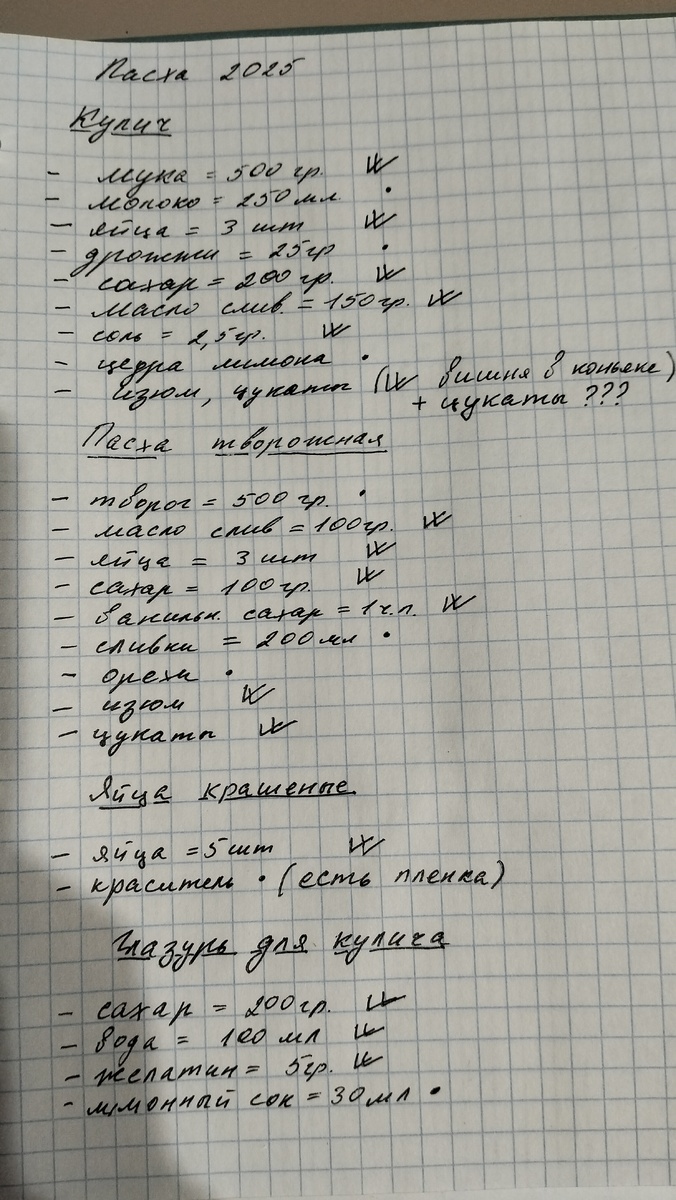 Пасха 2025
Кулич
- мука = 500 гр.
- молоко = 250 мл.
- яйца = 3 шт
- дрожжи = 25 гр
- сахар = 200 гр.
- масло слив. = 150 гр.
- соль = 2,5 гр.
- цедра лимона
- изюм, цукаты (вишня в коньяке)
+ цукаты ???
Пасха творожная
- творог = 500 гр.
- масло слив = 100 гр.
- яйца = 3 шт
- сахар = 100 гр.
- ванильн. сахар = 1 ч.л.
- сливки = 200 мл
- орехи
- изюм
- цукаты
Яйца крашеные
- яйца = 5 шт
- краситель (есть пленка)
Глазурь для кулича
- сахар = 200 гр.
- вода = 100 мл
- желатин = 5 гр.
- лимонный сок = 30 мл